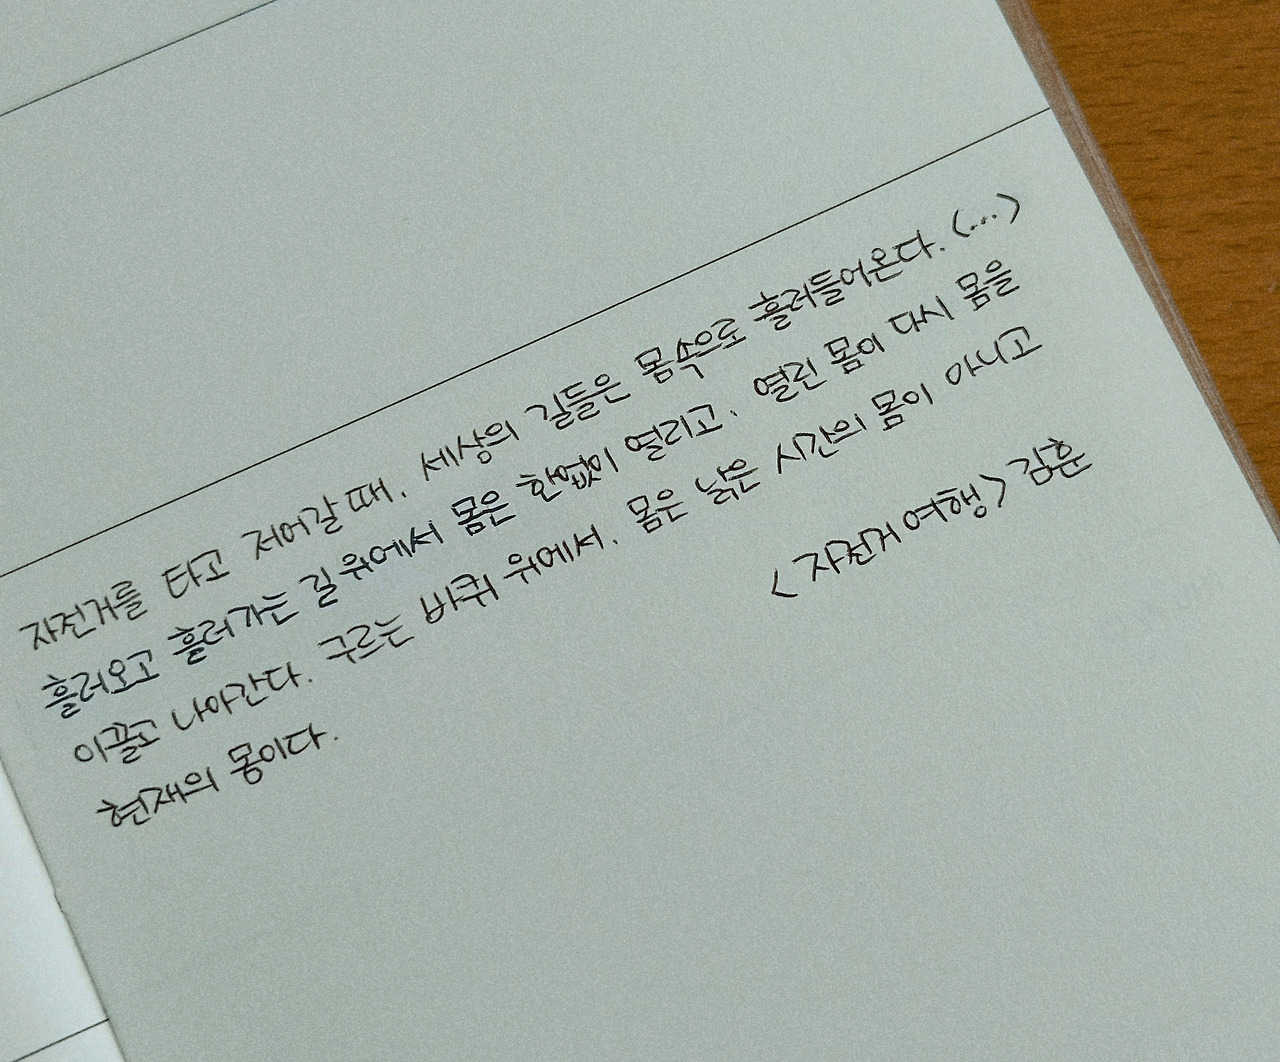 자전거를 타고 저어갈 때, 세상의 길들은 몸속으로 흘러들어온다. <...>
흘러오고 흘러가는 길 위에서 몸은 한없이 열리고, 열린 몸이 다시 몸을
이끌고 나아간다. 구르는 바퀴 위에서, 몸은 낡은 시간의 몸이 아니고
현재의 몸이다.
<자전거 여행> 김훈